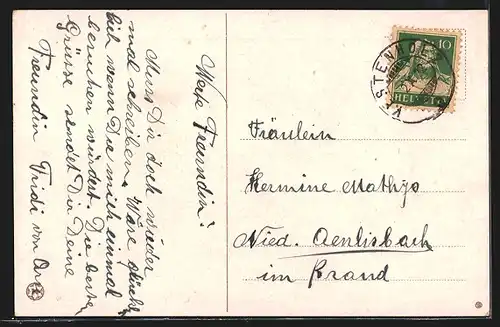 Werte Freundin!
Muss Dir doch wieder
mal schreiben. Wäre glückl.
lich wenn Du mich einmal
besuchen würdest. Die besten
Grüsse sendet Dir Deine
Freundin Fridi von
10
HELVETIA
KESTENHOLZ
Fräulein
Hermine Mathys
Nied. Oenlisbach
im Brand